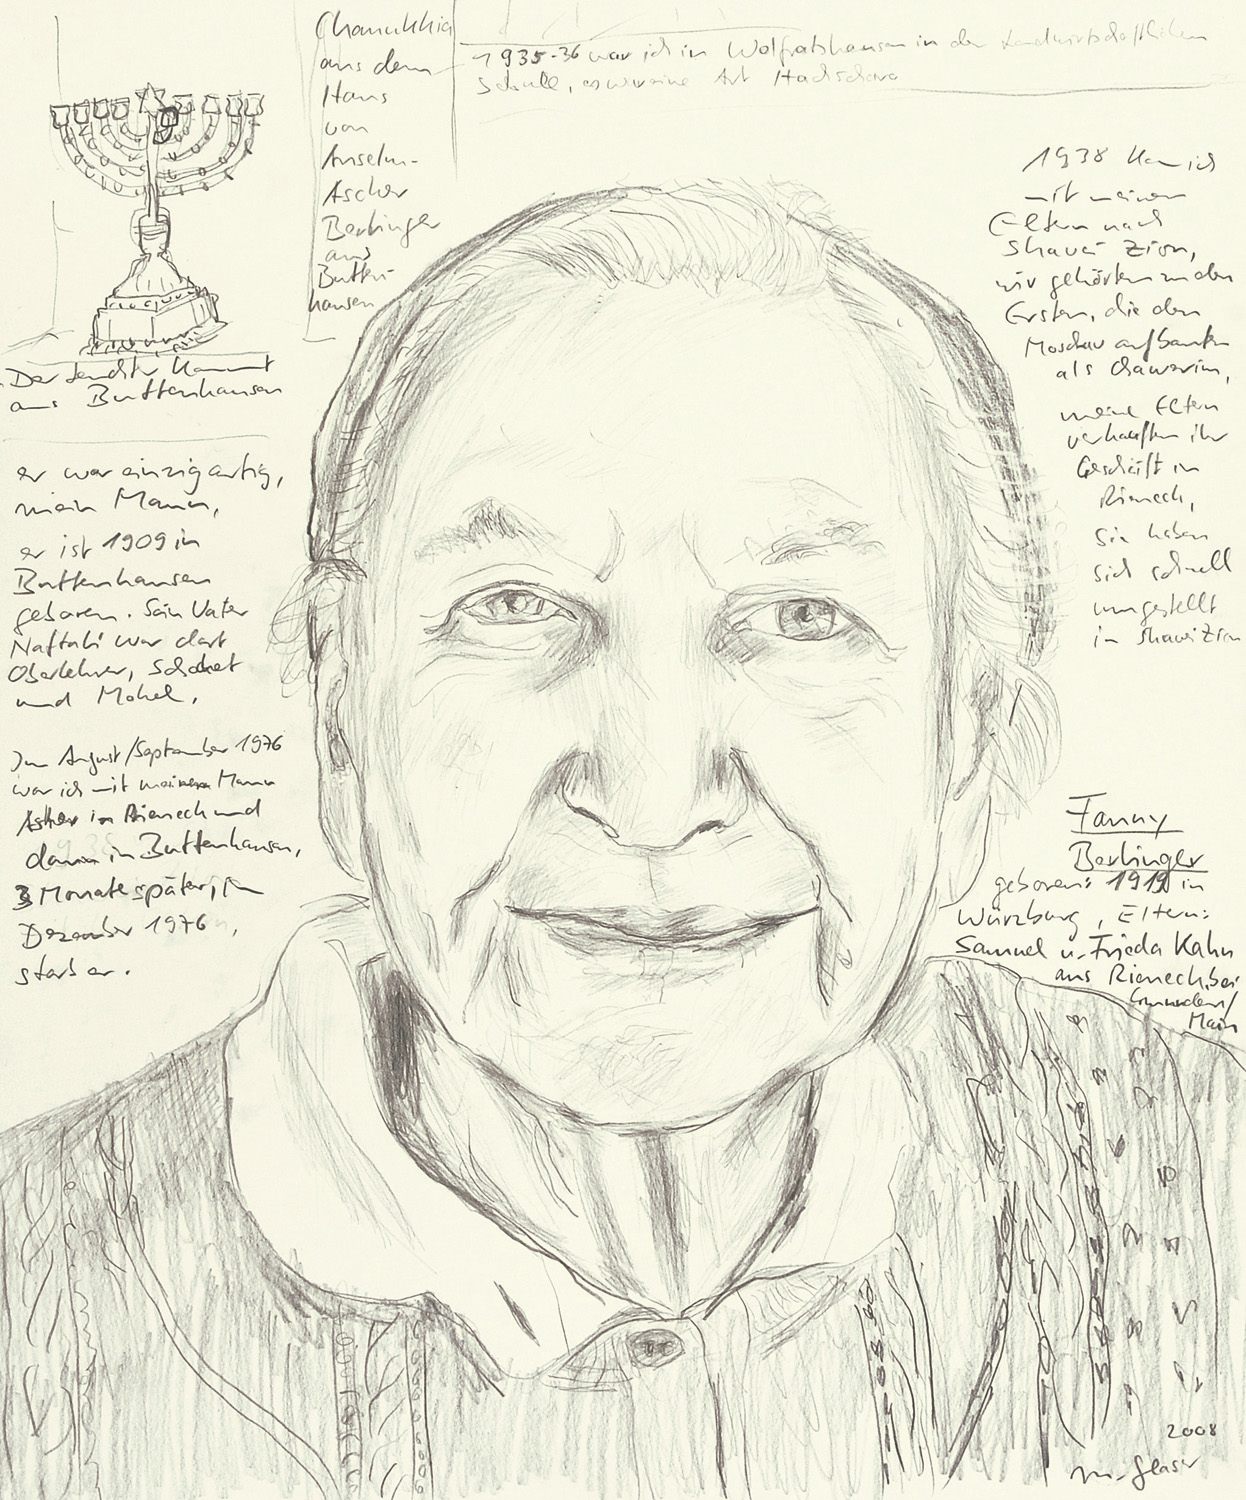 Chanukkia
aus dem
Haus
von
Anselm-
Ascher
Berlinger
aus
Butten-
hausen
1935-36 war ich in Wolfratshausen in der Landwirtschaftlichen
Schule, es war eine Art Hachschara
Der Leuchter kommt
aus Buttenhausen
er war einzigartig,
mein Mann,
er ist 1909 in
Buttenhausen
geboren. Sein Vater
Naftali war dort
Oberlehrer, Schochet
und Mohel.
Im August/September 1976
war ich mit meinem Mann
Asher in Rieneck und
dann in Buttenhausen,
3 Monate später, im
Dezember 1976,
starb er.
1938 kam ich
mit meinen
Eltern nach
Shavei Zion,
wir gehörten zu den
Ersten, die den
Moschav aufbauten
als Chawerim,
meine Eltern
verkauften ihr
Geschäft in
Rieneck,
sie haben
sich schnell
umgestellt
in Shavei Zion
Fanny
Berlinger
geboren: 1919 in
Würzburg, Eltern:
Samuel u. Frieda Kahn
aus Rieneck bei
Gemünden/
Main
2008
M. Glaser